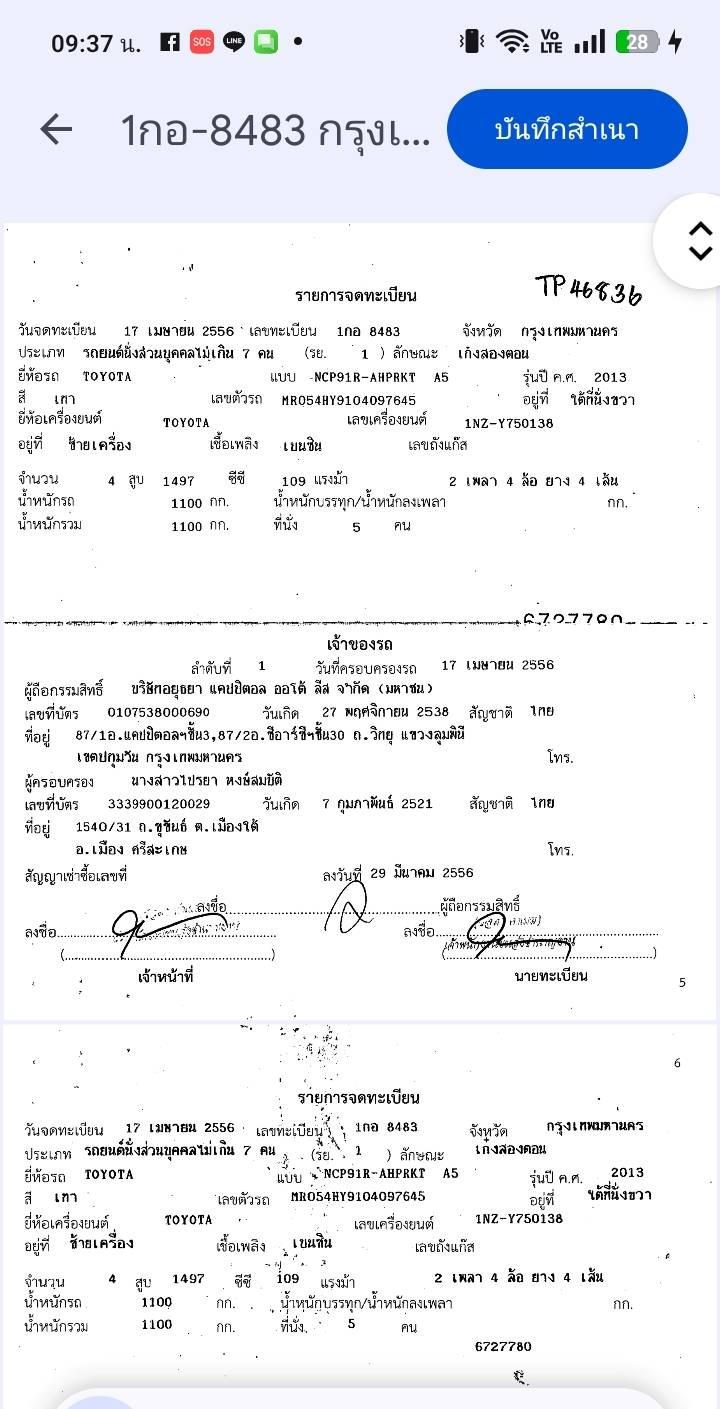 09:37 น. SOS LINE Vo LTE 28
1กอ-8483 กรุงเ... บันทึกสำเนา
รายการจดทะเบียน TP46836
วันจดทะเบียน 17 เมษายน 2556 เลขทะเบียน 1กอ 8483 จังหวัด กรุงเทพมหานคร
ประเภท รถยนต์นั่งส่วนบุคคลไม่เกิน 7 คน (รย. 1 ) ลักษณะ เก๋งสองตอน
ยี่ห้อรถ TOYOTA แบบ NCP91R-AHPRKT A5 รุ่นปี ค.ศ. 2013
สี เทา เลขตัวรถ MR054HY9104097645 อยู่ที่ ใต้ที่นั่งขวา
ยี่ห้อเครื่องยนต์ TOYOTA เลขเครื่องยนต์ 1NZ-Y750138
อยู่ที่ ซ้ายเครื่อง เชื้อเพลิง เบนซิน เลขถังแก๊ส
จำนวน 4 สูบ 1497 ซีซี 109 แรงม้า 2 เพลา 4 ล้อ ยาง 4 เส้น
น้ำหนักรถ 1100 กก. น้ำหนักบรรทุก/น้ำหนักลงเพลา กก.
น้ำหนักรวม 1100 กก. ที่นั่ง 5 คน
6727780
เจ้าของรถ
ลำดับที่ 1 วันที่ครอบครองรถ 17 เมษายน 2556
ผู้ถือกรรมสิทธิ์ บริษัทอยุธยา แคปปิตอล ออโต้ ลีส จำกัด (มหาชน)
เลขที่บัตร 0107538000690 วันเกิด 27 พฤศจิกายน 2538 สัญชาติ ไทย
ที่อยู่ 87/1อ.แคปปิตอลฯชั้น3,87/2อ.ซีอาร์ซีฯชั้น30 ถ.วิทยุ แขวงลุมพินี
เขตปทุมวัน กรุงเทพมหานคร โทร.
ผู้ครอบครอง นางสาวไปรยา หงษ์สมบัติ
เลขที่บัตร 3339900120029 วันเกิด 7 กุมภาพันธ์ 2521 สัญชาติ ไทย
ที่อยู่ 1540/31 ถ.ขุขันธ์ ต.เมืองใต้
อ.เมือง ศรีสะเกษ โทร.
สัญญาเช่าซื้อเลขที่ ลงวันที่ 29 มีนาคม 2556
ลงชื่อ ผู้ถือกรรมสิทธิ์
ลงชื่อ ลงชื่อ
(....) (....)
เจ้าหน้าที่ นายทะเบียน
5
6
รายการจดทะเบียน
วันจดทะเบียน 17 เมษายน 2556 เลขทะเบียน 1กอ 8483 จังหวัด กรุงเทพมหานคร
ประเภท รถยนต์นั่งส่วนบุคคลไม่เกิน 7 คน (รย. 1 ) ลักษณะ เก๋งสองตอน
ยี่ห้อรถ TOYOTA แบบ NCP91R-AHPRKT A5 รุ่นปี ค.ศ. 2013
สี เทา เลขตัวรถ MR054HY9104097645 อยู่ที่ ใต้ที่นั่งขวา
ยี่ห้อเครื่องยนต์ TOYOTA เลขเครื่องยนต์ 1NZ-Y750138
อยู่ที่ ซ้ายเครื่อง เชื้อเพลิง เบนซิน เลขถังแก๊ส
จำนวน 4 สูบ 1497 ซีซี 109 แรงม้า 2 เพลา 4 ล้อ ยาง 4 เส้น
น้ำหนักรถ 1100 กก. น้ำหนักบรรทุก/น้ำหนักลงเพลา กก.
น้ำหนักรวม 1100 กก. ที่นั่ง 5 คน
6727780